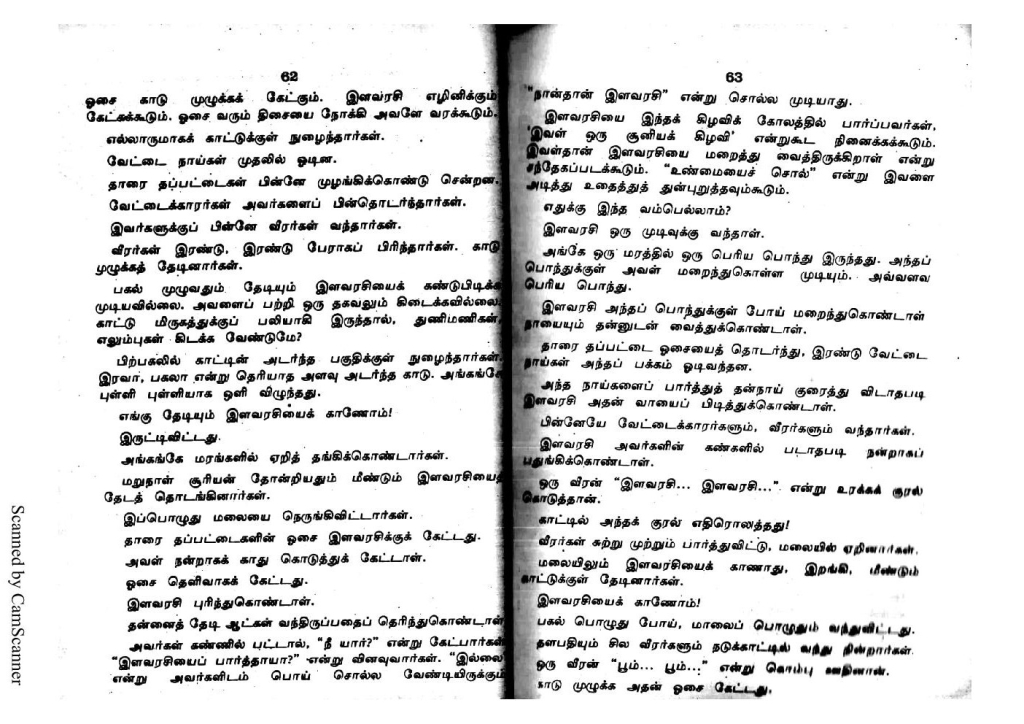 62
ஓசை காடு முழுக்கக் கேட்கும். இளவரசி எழினிக்கும்
கேட்கக்கூடும். ஓசை வரும் திசையை நோக்கி அவளே வரக்கூடும்.
எல்லாருமாகக் காட்டுக்குள் நுழைந்தார்கள்.
வேட்டை நாய்கள் முதலில் ஓடின.
தாரை தப்பட்டைகள் பின்னே முழங்கிக்கொண்டு சென்றன.
வேட்டைக்காரர்கள் அவர்களைப் பின்தொடர்ந்தார்கள்.
இவர்களுக்குப் பின்னே வீரர்கள் வந்தார்கள்.
வீரர்கள் இரண்டு, இரண்டு பேராகப் பிரிந்தார்கள். காடு
முழுக்கத் தேடினார்கள்.
பகல் முழுவதும் தேடியும் இளவரசியைக் கண்டுபிடிக்க
முடியவில்லை. அவளைப் பற்றி ஒரு தகவலும் கிடைக்கவில்லை.
காட்டு மிருகத்துக்குப் பலியாகி இருந்தால், துணிமணிகள்,
எலும்புகள் கிடக்க வேண்டுமே?
பிற்பகலில் காட்டின் அடர்ந்த பகுதிக்குள் நுழைந்தார்கள்.
இரவா, பகலா என்று தெரியாத அளவு அடர்ந்த காடு. அங்கங்கே
புள்ளி புள்ளியாக ஒளி விழுந்தது.
எங்கு தேடியும் இளவரசியைக் காணோம்!
இருட்டிவிட்டது.
அங்கங்கே மரங்களில் ஏறித் தங்கிக்கொண்டார்கள்.
மறுநாள் சூரியன் தோன்றியதும் மீண்டும் இளவரசியைத்
தேடத் தொடங்கினார்கள்.
இப்பொழுது மலையை நெருங்கிவிட்டார்கள்.
தாரை தப்பட்டைகளின் ஓசை இளவரசிக்குக் கேட்டது.
அவள் நன்றாகக் காது கொடுத்துக் கேட்டாள்.
ஓசை தெளிவாகக் கேட்டது.
இளவரசி புரிந்துகொண்டாள்.
தன்னைத் தேடி ஆட்கள் வந்திருப்பதைப் தெரிந்துகொண்டாள்
அவர்கள் கண்ணில் பட்டால், "நீ யார்?" என்று கேட்பார்கள்
"இளவரசியைப் பார்த்தாயா?" என்று வினவுவார்கள். "இல்லை"
என்று அவர்களிடம் பொய் சொல்ல வேண்டியிருக்கும்
63
"நான்தான் இளவரசி" என்று சொல்ல முடியாது.
இளவரசியை இந்தக் கிழவிக் கோலத்தில் பார்ப்பவர்கள்,
'இவள் ஒரு சூனியக் கிழவி' என்றுகூட நினைக்கக்கூடும்.
இவள்தான் இளவரசியை மறைத்து வைத்திருக்கிறாள் என்று
சந்தேகப்படக்கூடும். "உண்மையைச் சொல்" என்று இவளை
அடித்து உதைத்துத் துன்புறுத்தவும்கூடும்.
எதுக்கு இந்த வம்பெல்லாம்?
இளவரசி ஒரு முடிவுக்கு வந்தாள்.
அங்கே ஒரு மரத்தில் ஒரு பெரிய பொந்து இருந்தது. அந்தப்
பொந்துக்குள் அவள் மறைந்துகொள்ள முடியும். அவ்வளவு
பெரிய பொந்து.
இளவரசி அந்தப் பொந்துக்குள் போய் மறைந்துகொண்டாள்
நாயையும் தன்னுடன் வைத்துக்கொண்டாள்.
தாரை தப்பட்டை ஓசையைத் தொடர்ந்து, இரண்டு வேட்டை
நாய்கள் அந்தப் பக்கம் ஓடிவந்தன.
அந்த நாய்களைப் பார்த்துத் தன்நாய் குரைத்து விடாதபடி
இளவரசி அதன் வாயைப் பிடித்துக்கொண்டாள்.
பின்னேயே வேட்டைக்காரர்களும், வீரர்களும் வந்தார்கள்.
இளவரசி அவர்களின் கண்களில் படாதபடி நன்றாகப்
பதுங்கிக்கொண்டாள்.
ஒரு வீரன் "இளவரசி... இளவரசி..." என்று உரக்கக் குரல்
கொடுத்தான்.
காட்டில் அந்தக் குரல் எதிரொலத்தது!
வீரர்கள் சுற்று முற்றும் பார்த்துவிட்டு, மலையில் ஏறினார்கள்.
மலையிலும் இளவரசியைக் காணாது, இறங்கி, மீண்டும்
காட்டுக்குள் தேடினார்கள்.
இளவரசியைக் காணோம்!
பகல் பொழுது போய், மாலைப் பொழுதும் வந்துவிட்டது.
தளபதியும் சில வீரர்களும் நடுக்காட்டில் வந்து நின்றார்கள்.
ஒரு வீரன் "பூம்... பூம்..." என்று கொம்பு ஊதினான்.
காடு முழுக்க அதன் ஓசை கேட்டது.
Scanned by CamScanner